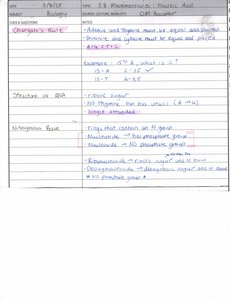 DATE 5/9/25 TOPIC 2.8 Macromolecules: Nucleic Acid
SUBJECT Biology SOURCE (LECTURE, BOOK, ETC) DAT Booster
CUES & QUESTIONS NOTES
Chargaff's Rule • Adenine and thymine must be equal and paired
• Guanine and cytosine must be equal and paired
Example: 15% A, what is G?
15 = A
15 = T
Structure of RNA • ribose sugar
• NO thymine but has uracil
• Single stranded
Nitrogenous Base • rings that contain an N group
• Nucleotide → has phosphate group
• Nucleoside → NO phosphate group
• Ribonucleoside → ribose sugar and N base
• Deoxynucleoside → deoxyribose sugar and N base
* NO phosphate group *